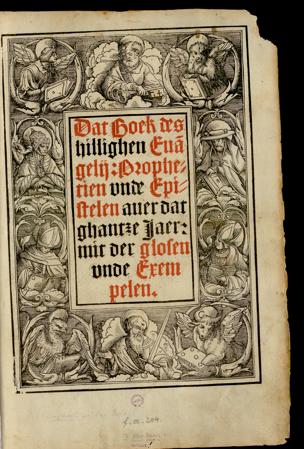 Dat Boek des
hillighen Euā
gelij: Prophe⸗
tien vnde Epi⸗
stelen auer dat
ghantze Jaer:
mit der glosen
vnde Exem
pelen.